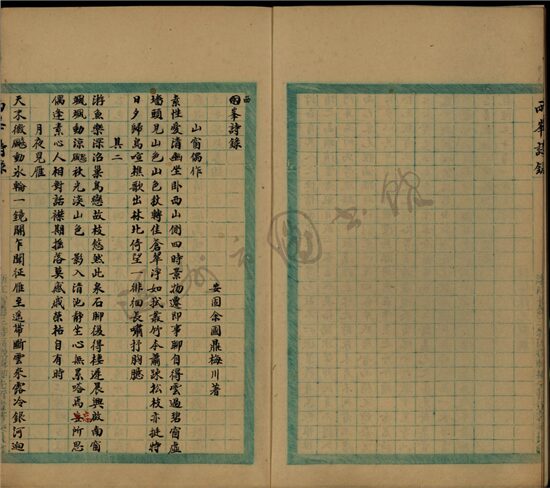 西峯詩錄
西
四峯詩錄
安固余國鼎梅川著
山窗偶作
素性愛清幽坐卧西山側四時景物遷即事聊自得雲過碧窗虛
墻頭見山色山色最轉佳蒼翠浮如拭叢竹令蕭疎松枝亦挺特
日夕歸鳥喧樵歌出林北倚望一徘徊長嘯抒胸臆
其二
游魚樂深沼巢鳥戀故枝悠然此來石腳後得棲遲晨興啟南窗
颯颯動涼颸秋光淡山色 影入清池靜坐心無累嗒焉 所思
偶逢素心人相對話襟期搖落莫感戚榮枯自有時
月夜見雁
天末微颸動冰輪一鏡開乍聞征雁至遥帶斷雲來露冷銀河迥
州市圖書館